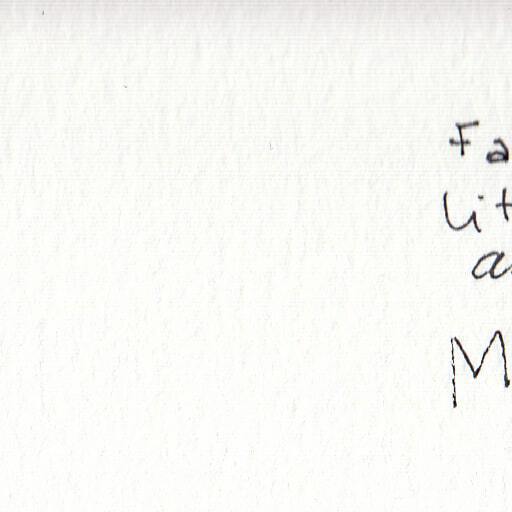 Fa
lit
a
M